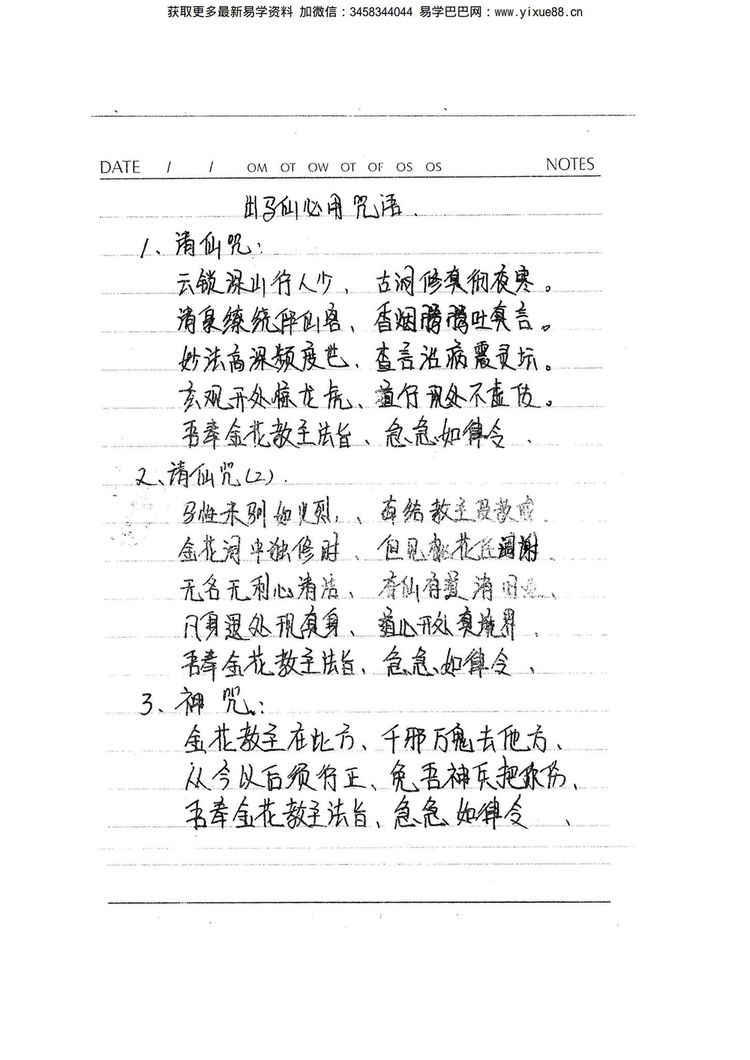 获取更多最新易学资料 加微信：3458344044 易学巴巴网：www.yixue88.cn
DATE / / OM OT OW OT OF OS OS NOTES
出马仙必用咒语.
1、请仙咒：
云锁深山行人少、古洞修真彻夜寒。
清泉缭绕伴仙客、香烟腾腾吐真言。
妙法高深频度世、查言治病震灵坛。
玄观开处惊龙虎、道行现处不虚传。
吾奉金花教主法旨、急急如律令、
2、请仙咒(2).
马性未驯如火烈、幸结教主
金花洞中独修时、但见花凋谢
无名无利心清洁、仙有
凡身退处现真身、道心开处真境界、
吾奉金花教主法旨、急急如律令、
3、神咒：
金花教主在此方、千邪万鬼去他方、
从今以后须行正、免吾神兵把你伤、
吾奉金花教主法旨、急急如律令、